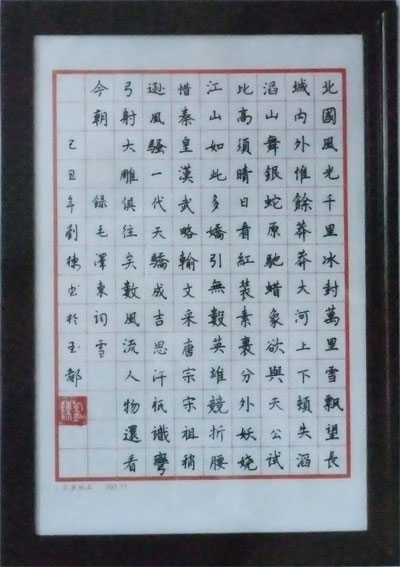 北國風光千里冰封萬里雪飄望長
城内外惟餘莽莽大河上下頓失滔
滔山舞銀蛇原馳蜡象欲與天公試
比高須晴日看紅裝素裹分外妖嬈
江山如此多嬌引無數英雄競折腰
惜秦皇漢武略輸文采唐宗宋祖稍
遜風騷一代天驕成吉思汗祇識彎
弓射大雕俱往矣數風流人物還看
今朝 錄毛澤東詞雪
己丑年劉棟书於玉都